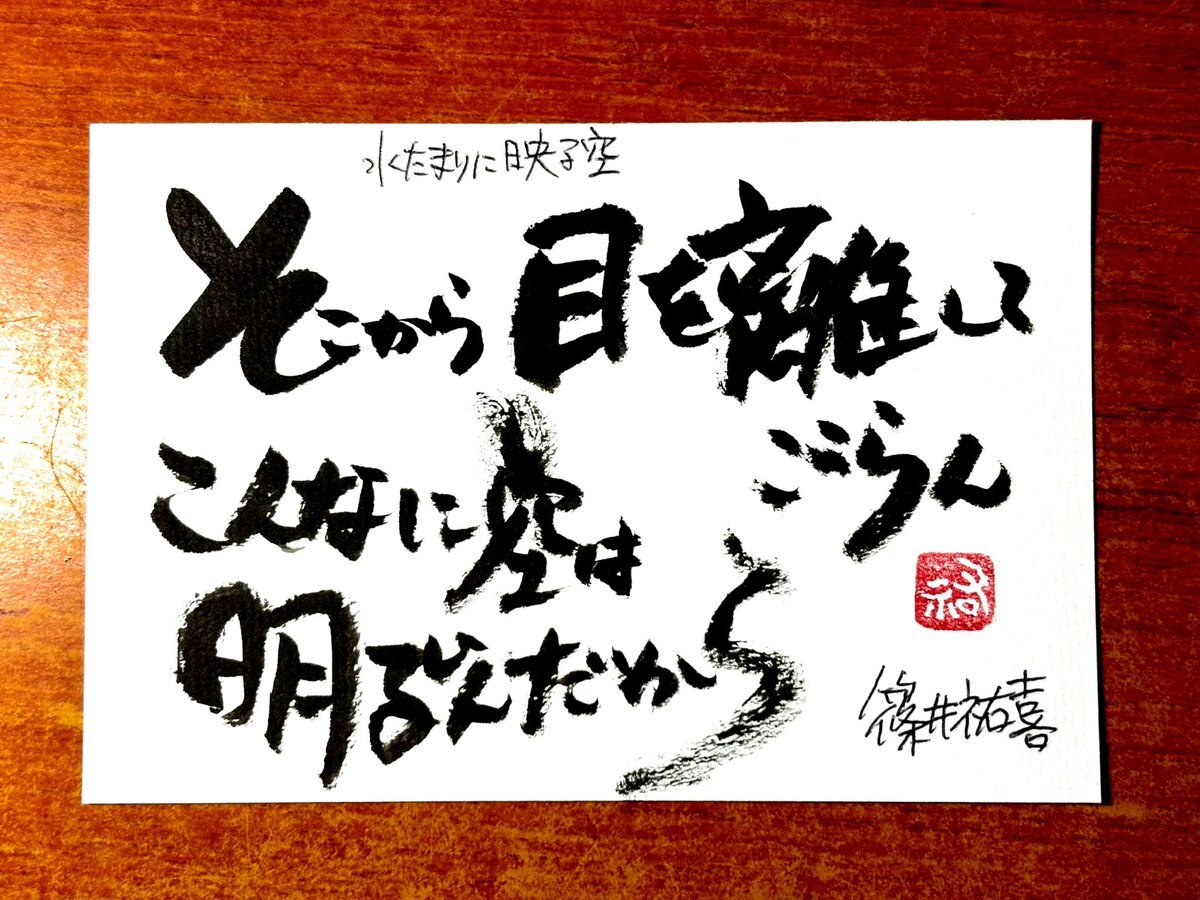 水たまりに映る空
そこから目を離して
ごらん
こんなに空は
明るいんだから
祐
篠井祐喜